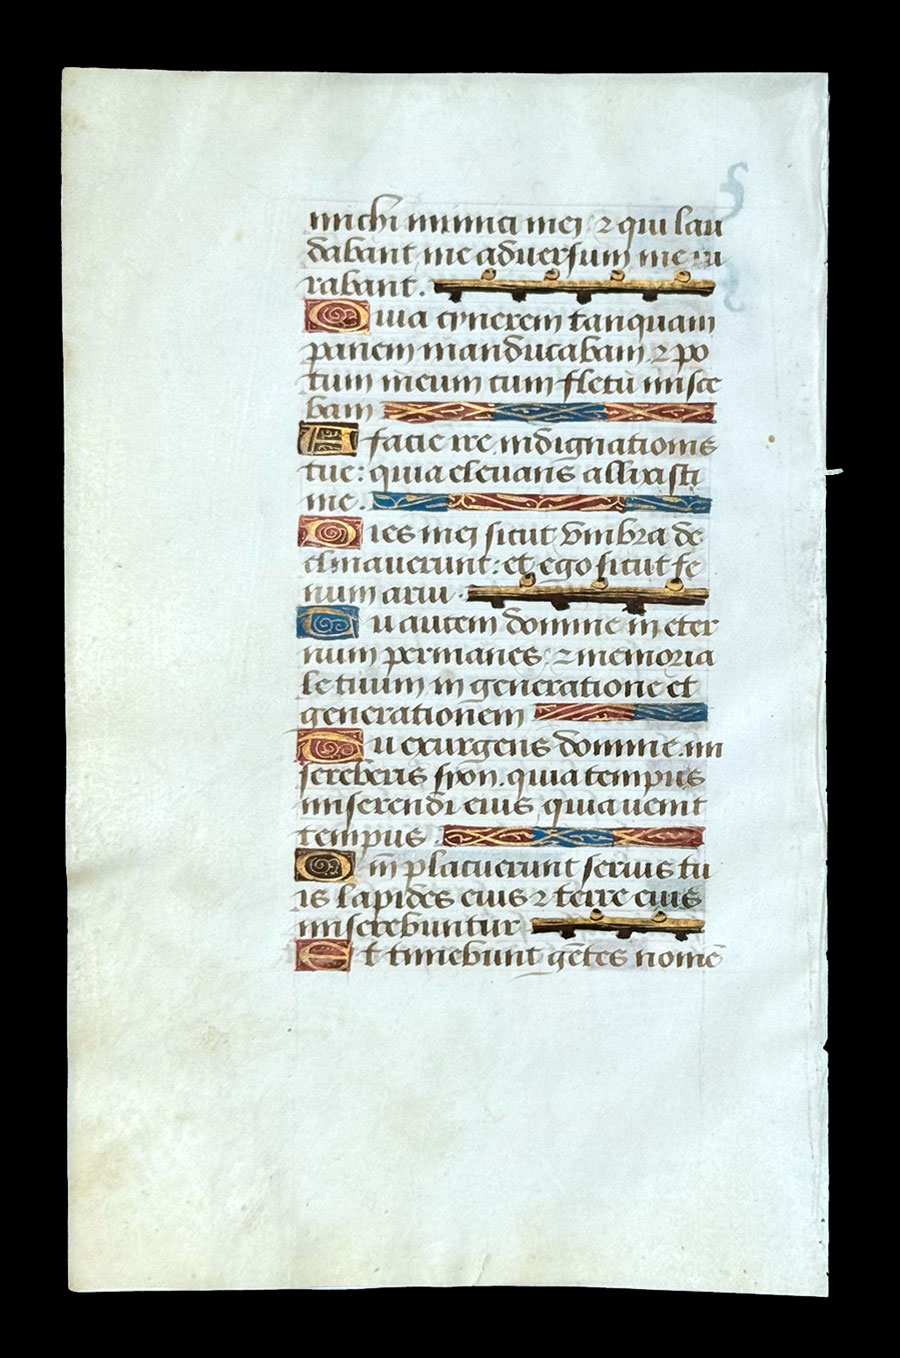 michi inimici mei: ⁊ qui lau
dabant me adversum me iu
rabant.
Quia cynerem tanquam
panem manducabam ⁊ po
tum meum cum fletū misce
bam
A facie ire indignationis
tue: quia elevans allixisti
me.
Dies mei sicut vmbra de
clinaverunt: et ego sicut fe
num arui.
Tu autem domine in eter
num permanes: ⁊ memoria
le tuum in generatione et
generationem
Tu exurgens domine mi
sereberis syon. quia tempus
miserendi eius quia venit
tempus.
Qm̄ placuerunt servis tu
is lapides eius ⁊ terre eius
miserebuntur
Et timebunt gētes nomē